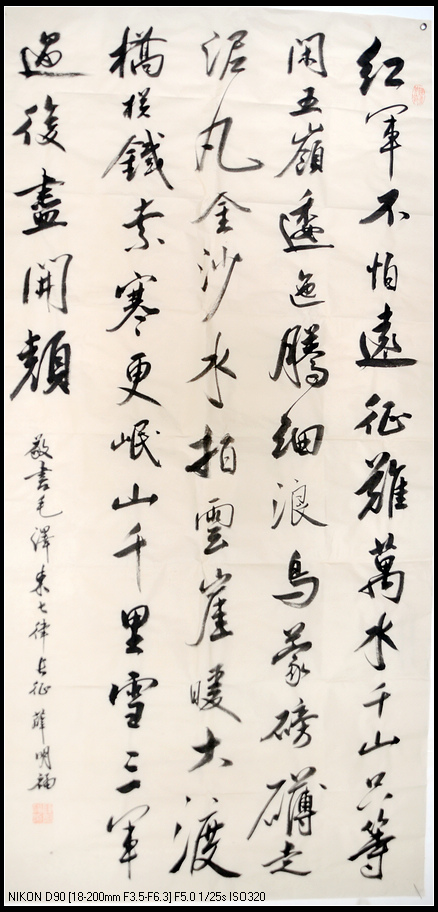 紅軍不怕遠征難萬水千山只等
閑五嶺逶迤騰細浪烏蒙磅礴走
泥丸金沙水拍雲崖暖大渡
橋橫鐵索寒更岷山千里雪三軍
過後盡開顏
敬書毛澤東七律長征薛明福
NIKON D90 [18-200mm F3.5-F6.3] F5.0 1/25s ISO320